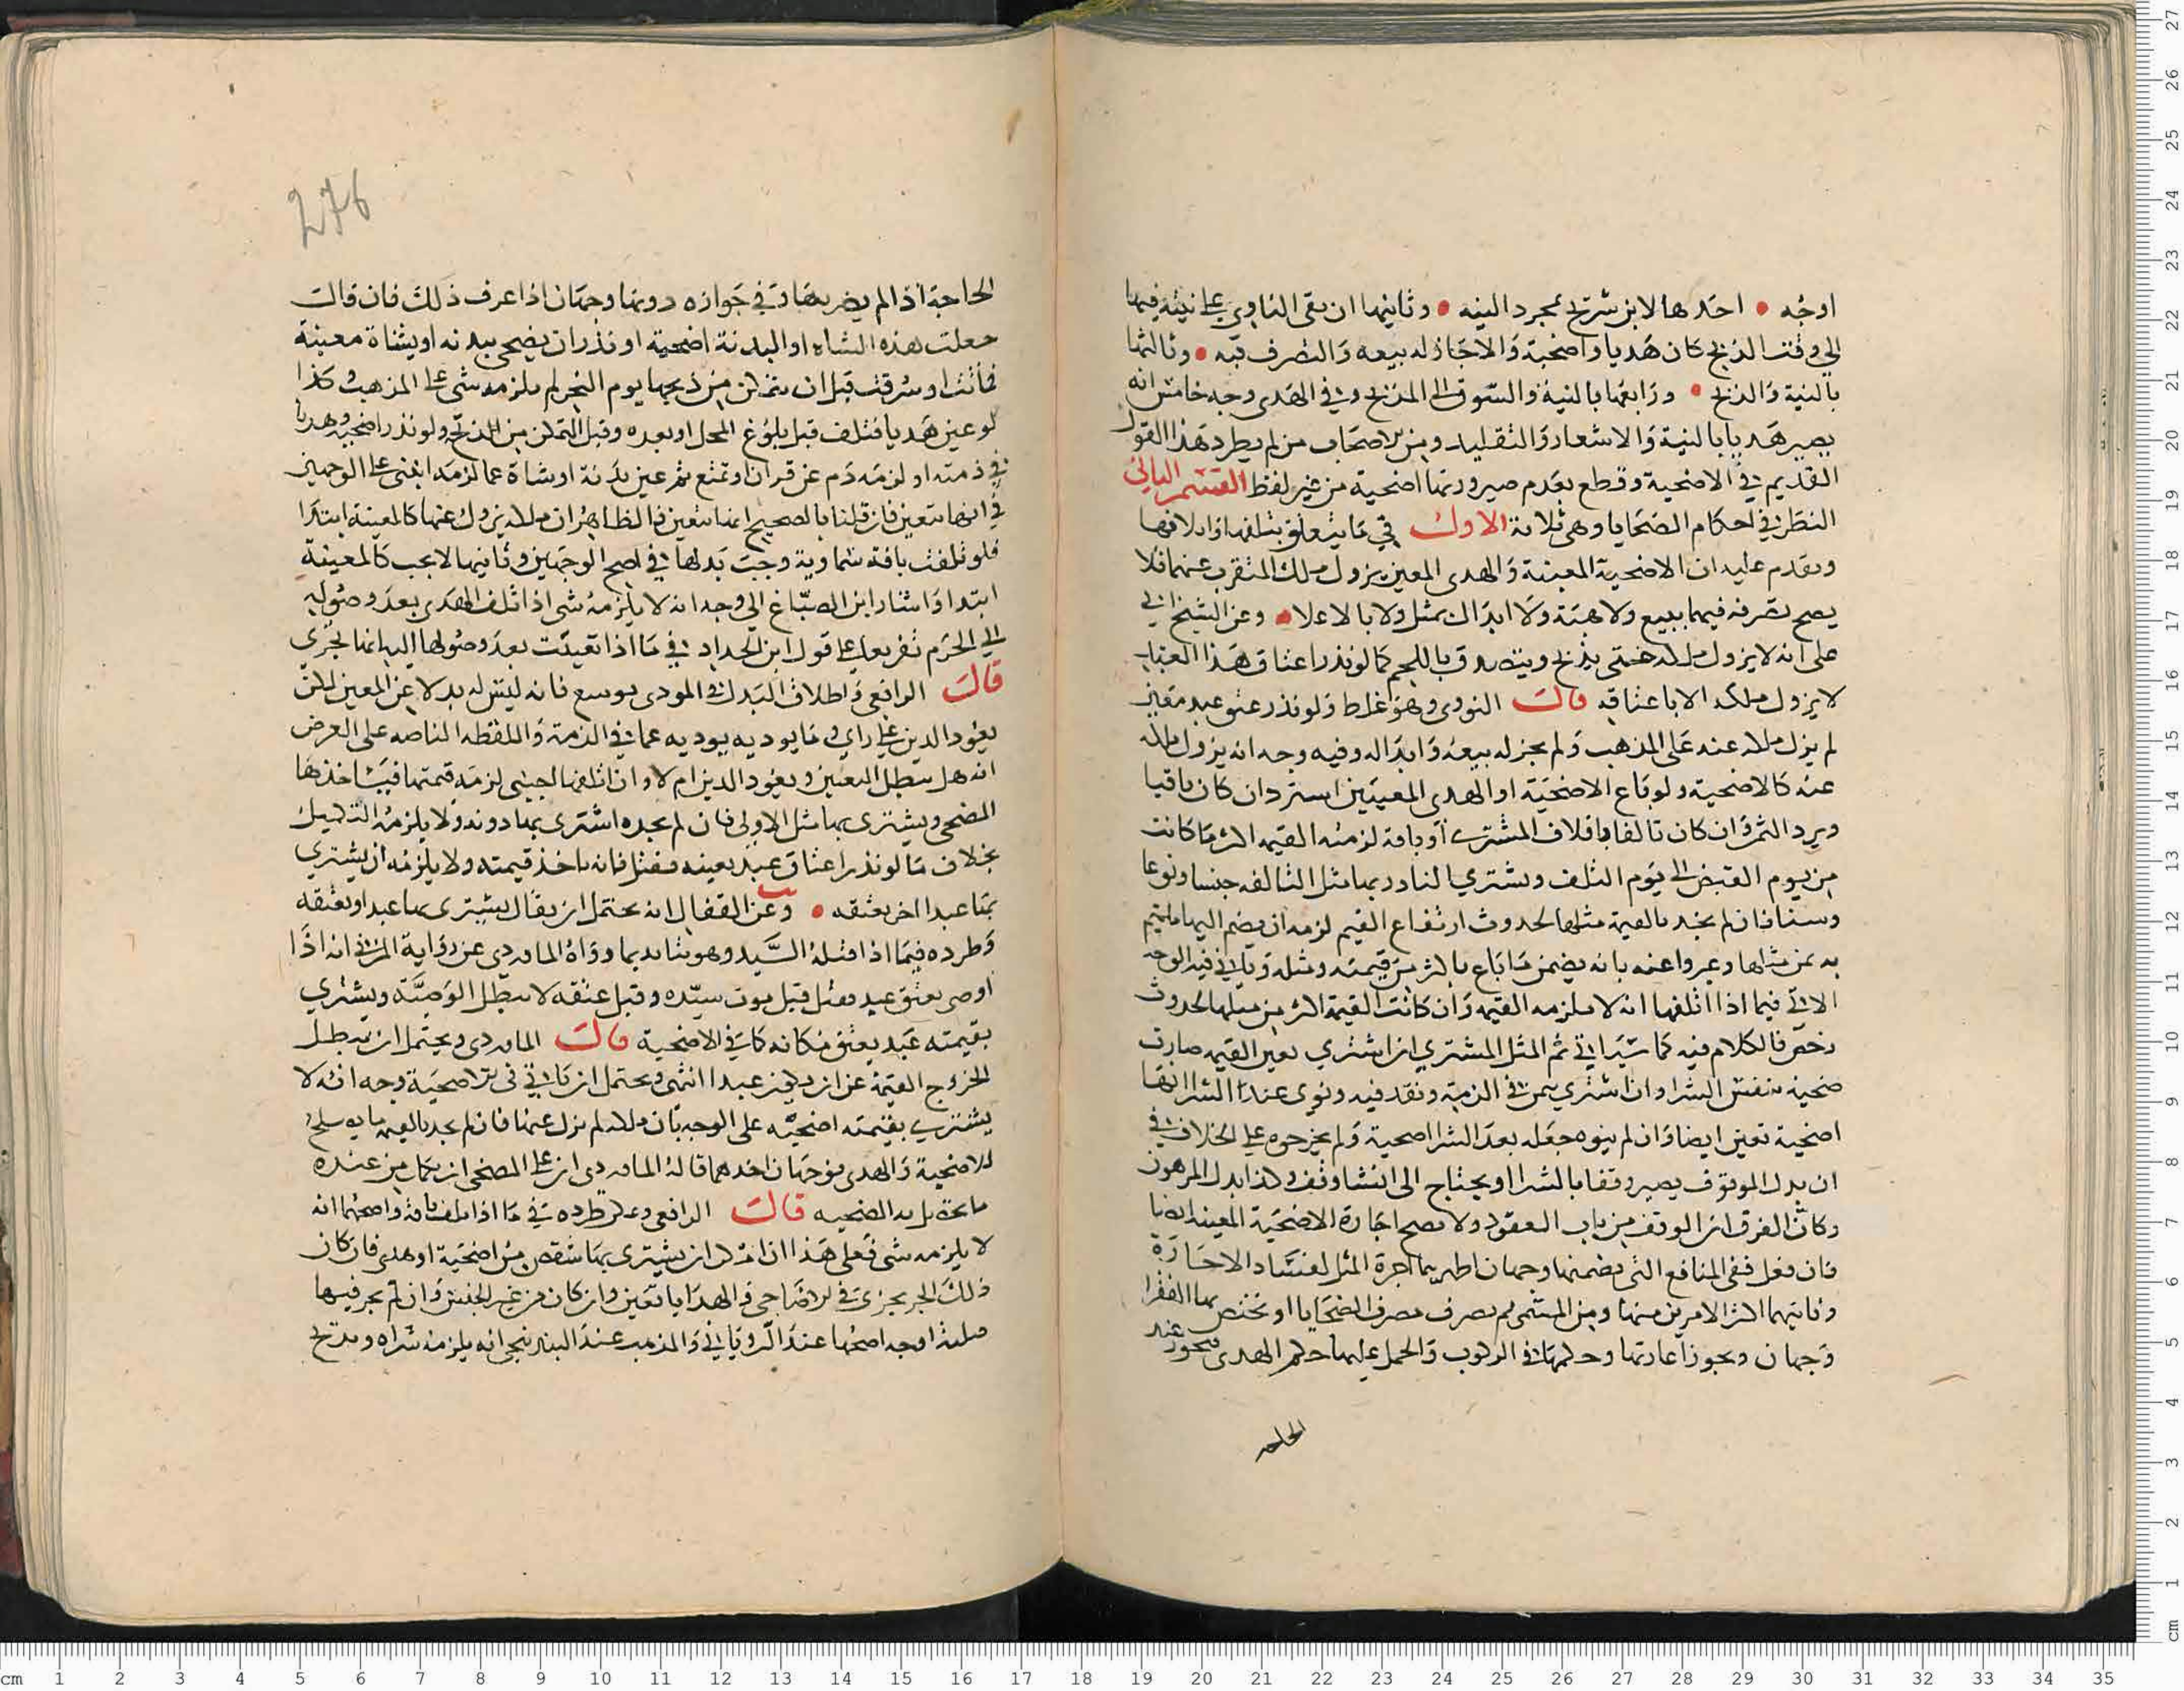 اوجه • احدها لابن شريح بمجرد النيه • وثانيها ان بقى الناوي على نيته فيها
الى وقت الذبح كان هديا واضحية والا جاز له بيعه والتصرف فيه • وثالثها
بالنية والذبح • ورابعها بالنية والسوق الى المذبح وفي الهدى وجه خامس انه
يصير هديا بالنية والاشعار والتقليد ومن الاصحاب من لم يطرد هذا القول
القديم في الاضحية وقطع بعدم صيرورتها اضحية من غير لفظ القسم الثاني
النظر في احكام الضحايا وهي ثلاثة الاول في ما يتعلق بتلفها واتلافها
ويقدم عليه ان الاضحية المعينة والهدى المعين يزول ملك المتقرب عنهما فلا
يصح تصرفه فيهما ببيع ولا هبة ولا ابدال بمثل ولا بالاعلا • وعن الشيخ ابي
على انه لا يزول ملكه حتى يذبح ويتصدق باللحم كما لو نذر اعتاق هذا العبد
لا يزول ملكه الا باعتاقه قال النووي وهو غلط ولو نذر عتق عبد معين
لم يزل ملكه عنه على المذهب ولم يجز له بيعه وابداله وفيه وجه انه يزول ملكه
عنه كالاضحية ولو باع الاضحية او الهدى المعينين استرد ان كان باقيا
ويرد الثمن وان كان تالفا باتلاف المشتري او بافة لزمته القيمة اكثر ما كانت
من يوم القبض الى يوم التلف ويشتري الناذر بها مثل التالفه جنسا ونوعا
وسنا فان لم يجد بالقيمة مثلها لحدوث ارتفاع القيم لزمه ان يضم اليها ما يتم
به ثمن مثلها وعبروا عنه بانه يضمن ما باع باكثر من قيمته ومثله وياتي فيه الوجه
الاتي فيما اذا اتلفها انه لا يلزمه القيمه وان كانت القيمة اكثر من مثلها لحدوث
رخص فالكلام فيه كما سياتي ثم المثل المشتري ان اشتري بعين القيمه صارت
ضحية بنفس الشرا وان اشتري بثمن في الذمة ونقد فيه ونوى عند الشرا انها
اضحية تعين ايضا وان لم ينوه جعله بعد الشرا اضحية ولم يخرجوه على الخلاف في
ان بدل الموقوف يصير وقفا بالشرا او يحتاج الى انشا وقف وكذا بدل المرهون
وكان الفرق ان الوقف من باب العقود ولا يصح اجارة الاضحية المعينة ايضا
فان فعل ففي المنافع التي يضمنها وجهان اظهرهما اجرة المثل لفساد الاجارة
وثانيهما اكثر الامرين منها ومن المسمى ثم يصرف مصرف الضحايا او يختص بها الفقرا
وجهان ويجوز اعارتها وحكمها في الركوب والحمل عليها حكم الهدى فيجوز عند
الحاجه
276
الحاجة اذا لم يضر بها وفي جوازه دونها وجهان اذا عرف ذلك فان قال
جعلت هذه الشاه او البدنة اضحية او نذر ان يضحي ببدنه او بشاة معينة
فماتت او سرقت قبل ان يتمكن من ذبحها يوم النحر لم يلزمه شى على المذهب وكذا
لو عين هديا فتلف قبل بلوغ المحل او بعده وقبل التمكن من الذبح ولو نذر اضحية وهديا
في ذمته او لزمه دم عن قران وتمتع ثم عين بدنة او شاة عما لزمه انبنى على الوجهين
في انها تتعين فان قلنا بالصحيح انها تتعين فالظاهر ان ملكه يزول عنها كالمعينة ابتدا
فلو تلفت بافه سماوية وجب بدلها في اصح الوجهين وثانيهما لا يجب كالمعينة
ابتدا واشار ابن الصباغ الى وجه انه لا يلزمه شى اذا تلف الهدى بعد وصوله
الى الحرم تفريعا على قول ابن الحداد في ما اذا تعيبت بعد وصولها اليه انها تجزي
قال الرافعي واطلاق البدل في المودى توسع فانه ليس له بدلا عن المعين لكن
يعود الدين على راي وما يوديه يوديه عما في الذمة واللفظه الناصه على الغرض
انه هل يبطل التعيين ويعود الدين ام لا وان اتلفها اجنبى لزمه قيمتها فياخذها
المضحي ويشترى بها مثل الاولى فان لم يجده اشترى بها دونه ولا يلزمه التكميل
بخلاف ما لو نذر اعتاق عبد بعينه فقتل فانه ياخذ قيمته ولا يلزمه ان يشتري
بها عبدا اخر يعتقه • وعن القفال انه يحتمل ان يقال يشترى بها عبدا ويعتقه
وطرده فيما اذا قتله السيد وهو شاهد بما رواه الماوردي عن رواية المزني انه اذا
اوصى بعتق عبد فقتل قبل موت سيده وقبل عتقه لا تبطل الوصية ويشتري
بقيمته عبد يعتق مكانه كما في الاضحية قال الماوردى ويحتمل ان تبطل
لخروج القيمة عن ان تكون عبدا انتهى ويحتمل ان ياتي في الاضحية وجه انه لا
يشتري بقيمته اضحية على الوجه بان ملكه لم يزل عنها فان لم يجد بالقيمة ما يصلح
للاضحية والهدى فوجهان احدهما قاله الماوردى ان على المضحي ان يضم من عنده
ما تحصل به الضحيه قال الرافعي ويمكن طرده في ما اذا تلفت بافة واصحهما انه
لا يلزمه شى فعلى هذا ان امكن ان يشترى بها شقص من اضحية او هدى فان كان
ذلك الجز يجزى في الاضاحي والهدايا تعين وان كان من غير الجنس وان لم يجز فيها
ثلاثة اوجه اصحها عند الروياني والمذهب عند البندنيجي انه يلزمه شراه ويذبح